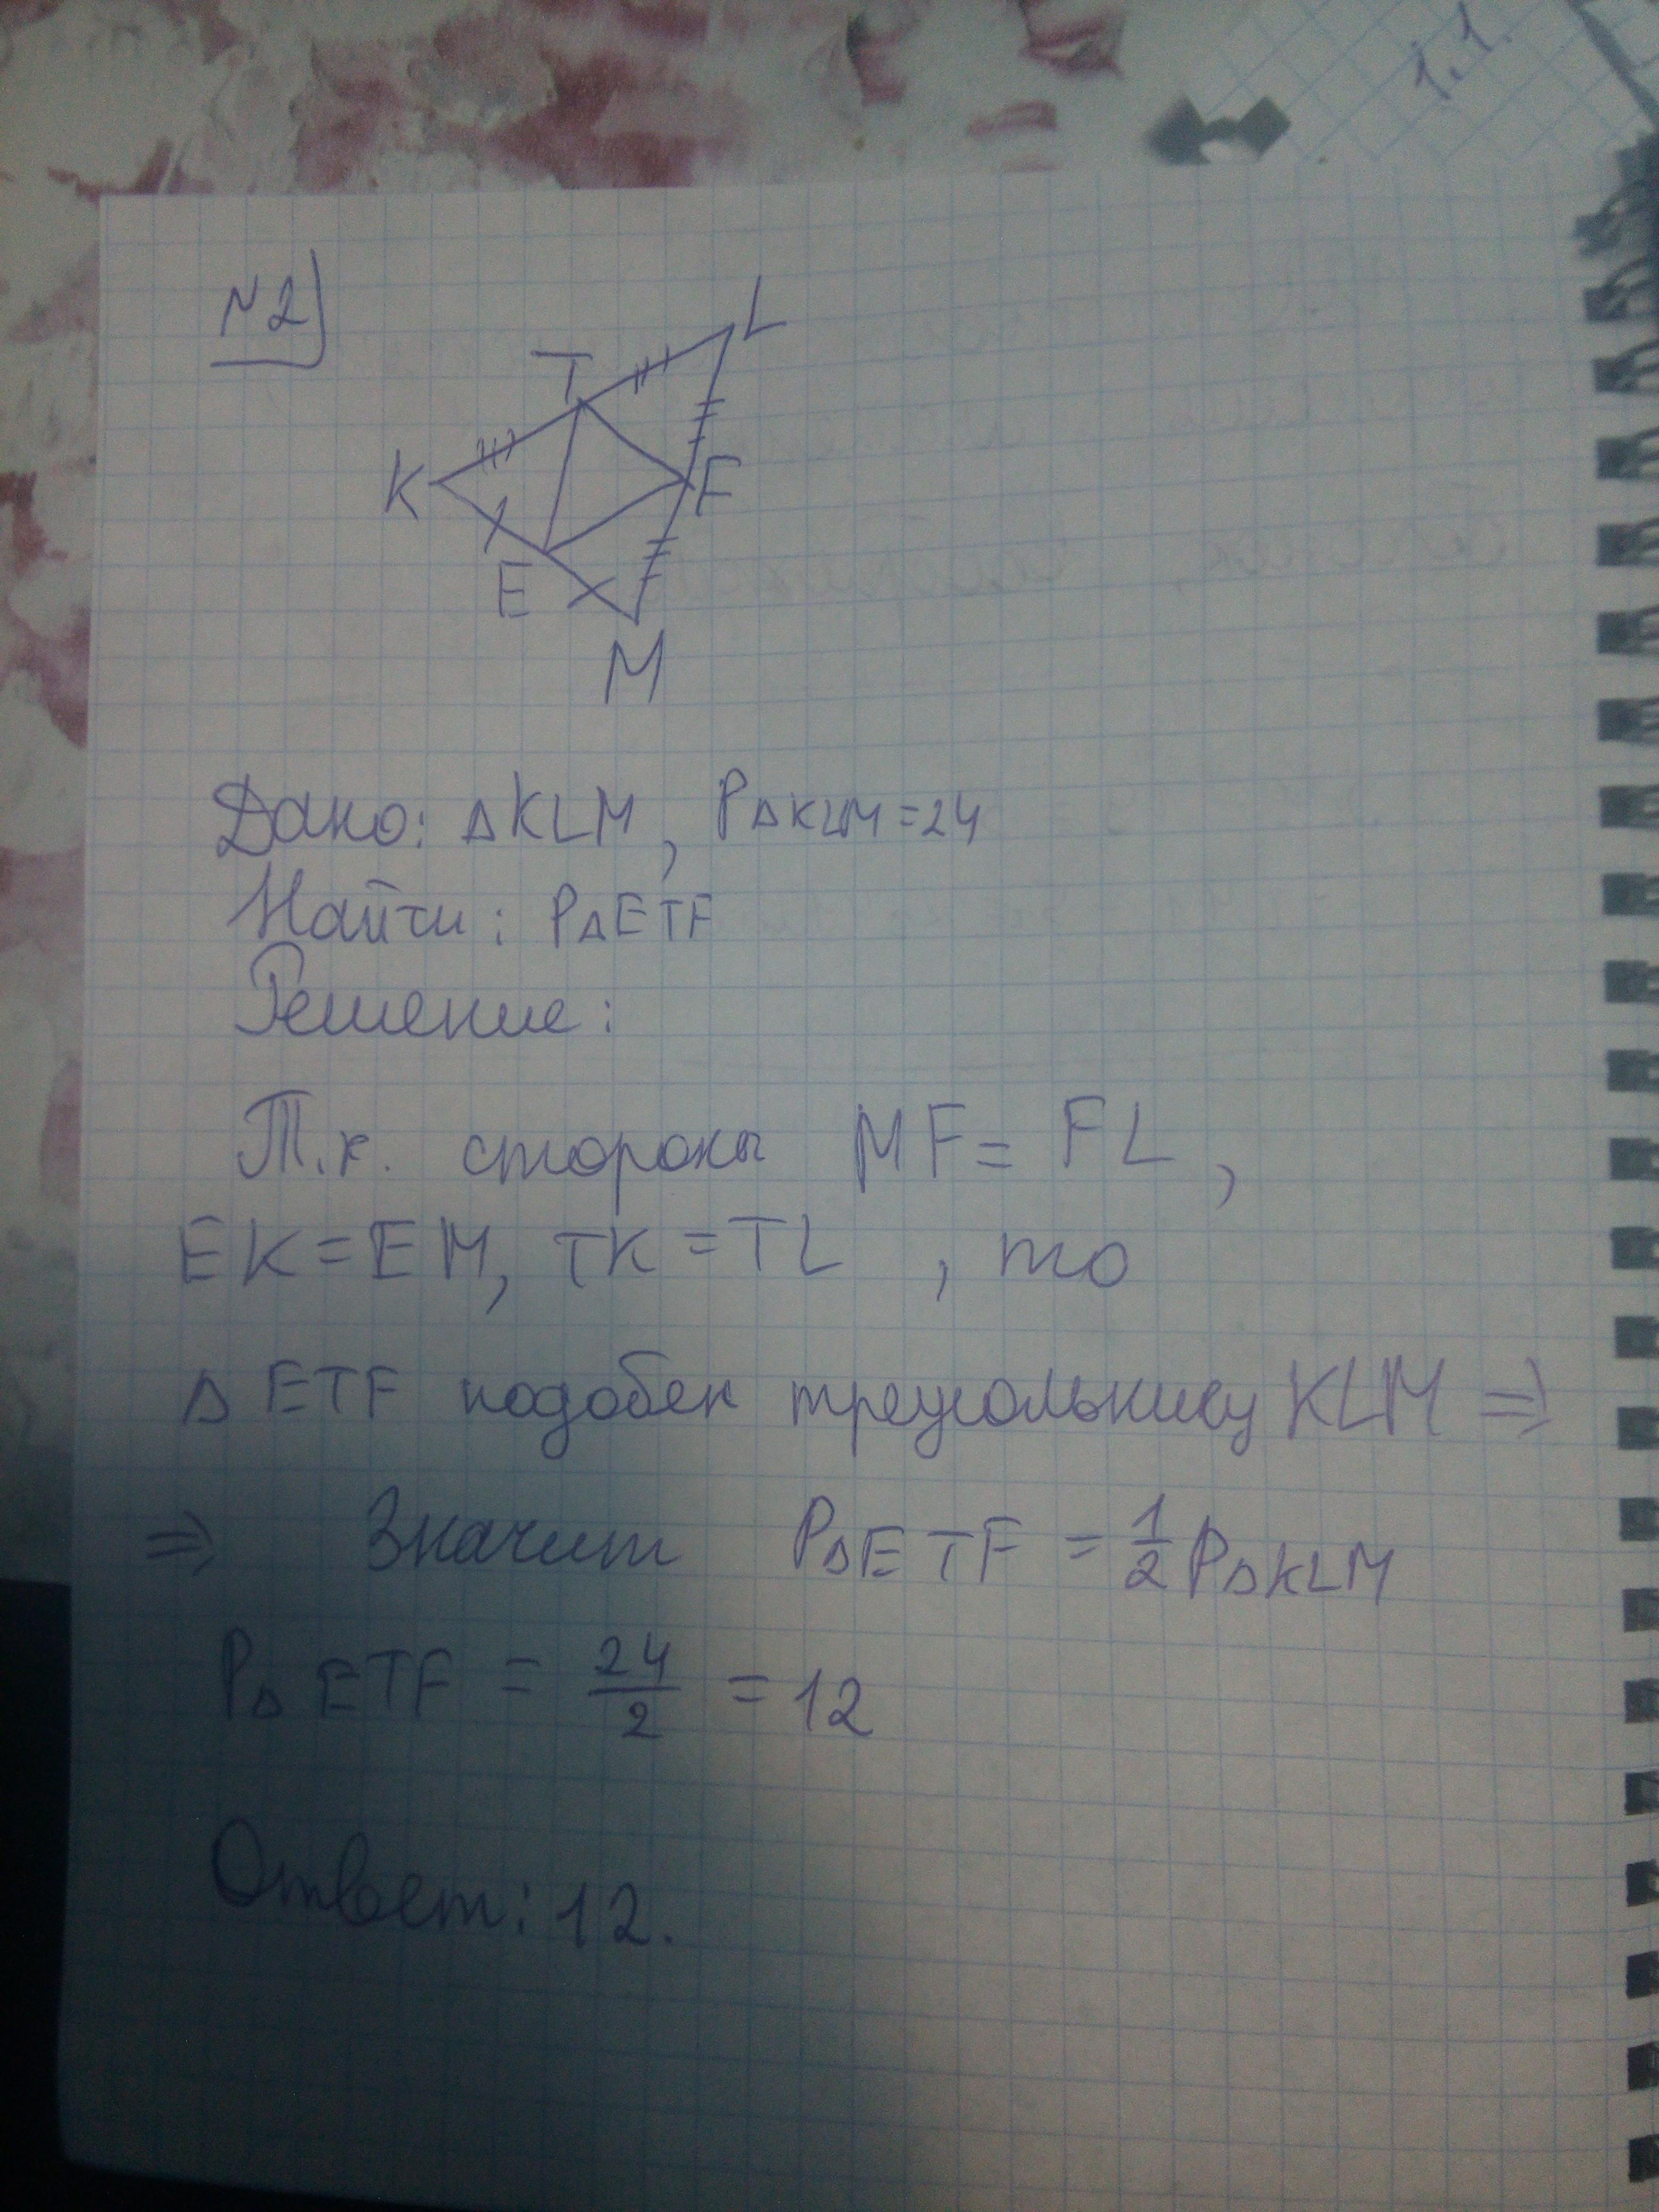 1.1.
N2)
L
T
K
F
E
M
Дано: △KLM, P△KLM=24
Найти: P△ETF
Решение:
Т.к. стороны MF = FL,
EK = EM, TK = TL, то
△ ETF подобен треугольнику KLM ⇒
⇒ Значит P△ETF = 1/2 P△KLM
P△ETF = 24/2 = 12
Ответ: 12.